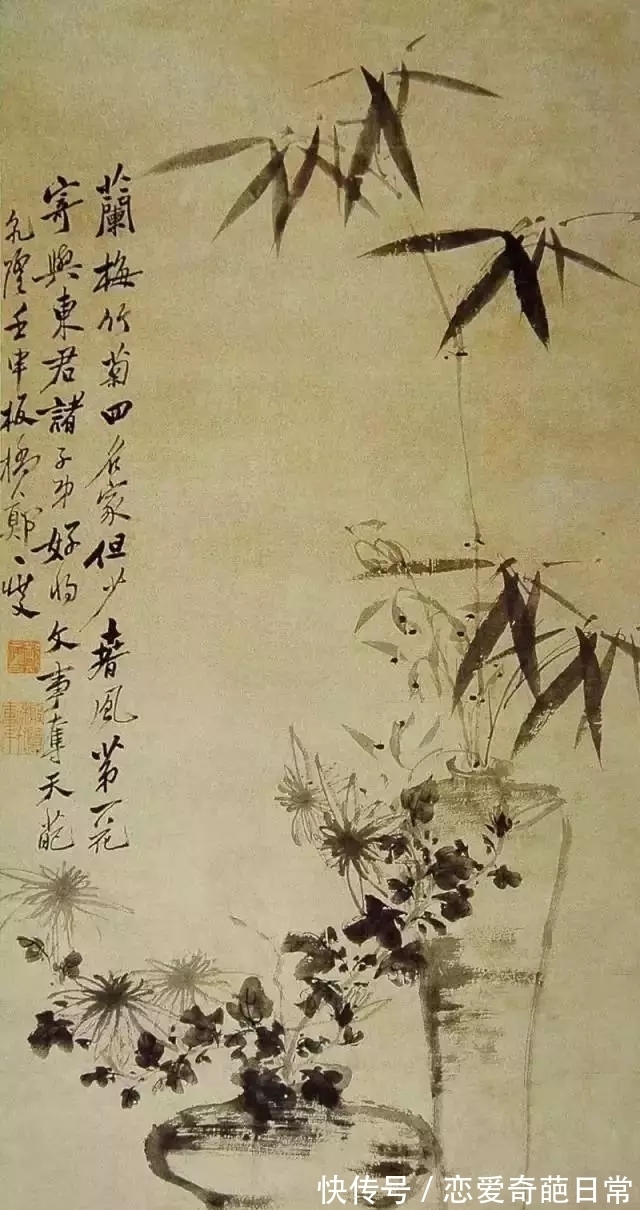 蘭梅竹菊四名家但少春風第一花
寄與東君諸子弟好將文事奪天葩
乾隆壬申板橋鄭燮
快传号/恋爱奇葩日常